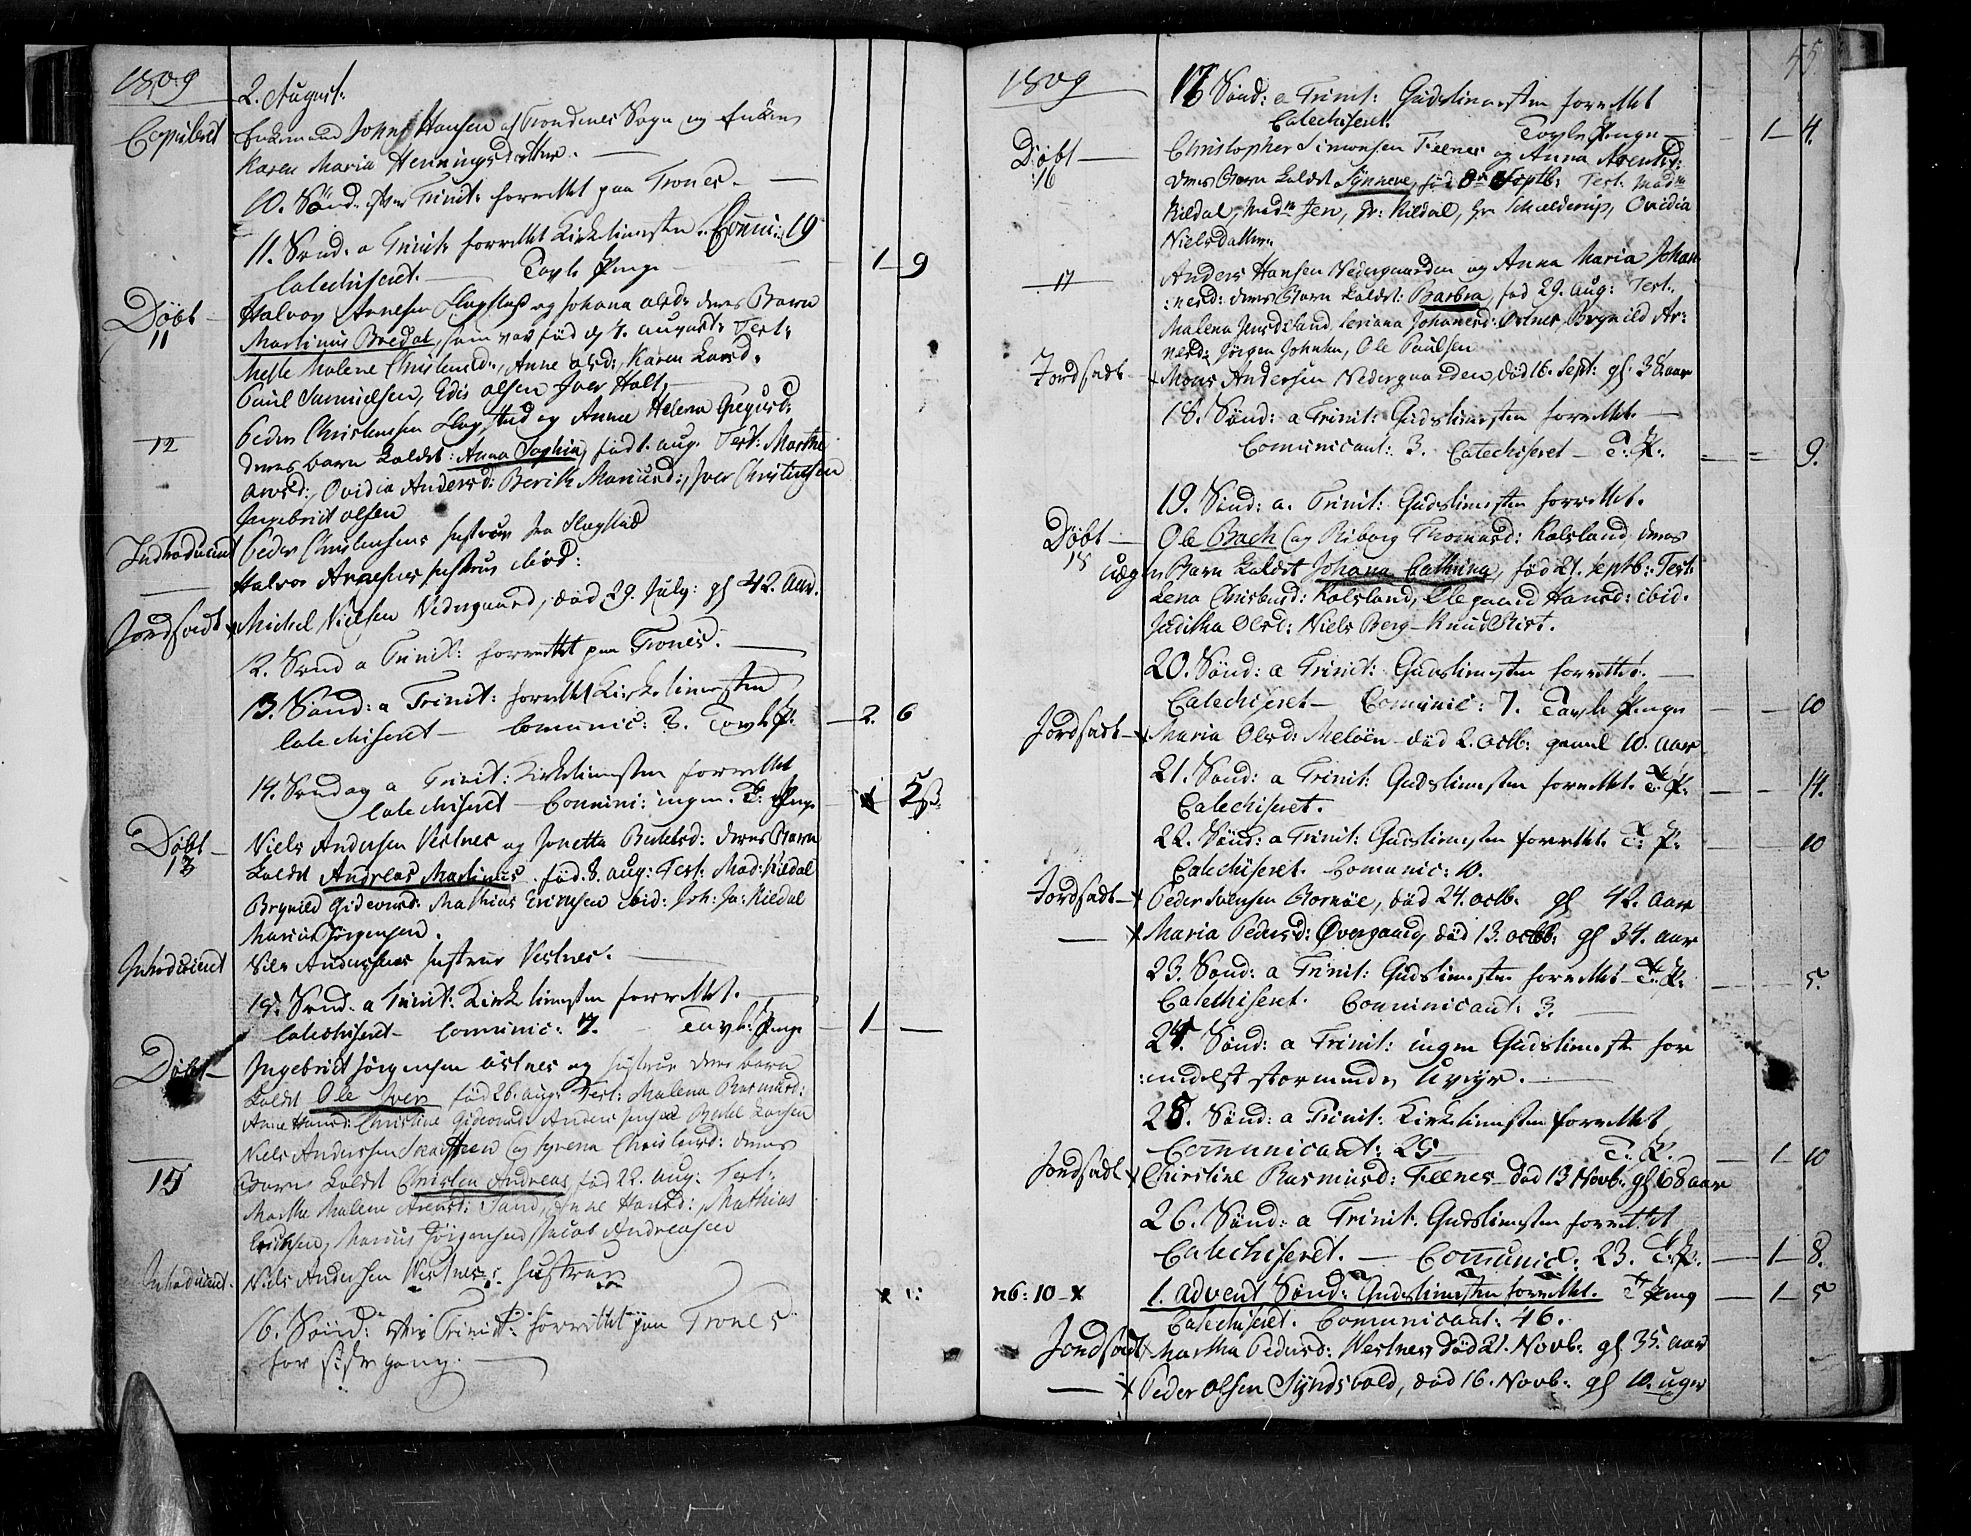 1809
2. August.
Copuleret Enkemand Johns Hansen af Trondenes Sogn og Enken
Karen Maria Henningsdatter.
10. Sønd: efter Trinit: forrettet paa Trones.
11. Sønd: a Trinit: forrettet Kirketienesten. Comuni: 19
Catechiseret. Tavle Penge 1 9
Døbt Halvor Arnesen Slagstad og Johana olsd: deres Barn
11 Martinus Bredal, som var fød d 7. august: Test:
Malene Christensd:, Anne olsd:, Karen Larsd:
Paul Samuelsen, Edis olsen Iver Holt,
12 Peder Christensen Slagstad og Anne Helena Gregusd:
deres barn kaldet: Anna Sophia, fød 1. aug. Test: Marthe
Arnsd:, Ovidia Andersd: Berith Mariusd:, Iver Christensen
Ingebrict olsen
Introduceret Peder Christensens hustrue fra Slagstad
Halvor Arnesens hustrue ibid:
Jordfæstet Michel Nielsen Nedergaard, død 29. July: gl 42. Aar.
12. Sønd a Trinit: forrettet paa Trones.
13. Sønd: a Trinit: forrettet Kirketienesten
Catechiseret Comunic: 8. Tavle P. 2. 6
14. Søndag a Trinit: Kirketienesten forrettet
Catechiseret Comuni: ingen. T: Penge 5 ß
Døbt Niels Andersen Vestnes og Jonetta Bertelsd: deres Barn
13 kaldet Andreas Martinus. fød. 8. aug: Test: Mad: Kildal
Brynild Gideonsd: Mathias Erichsen ibid: Joh: Ja: Kildal
Marius Jørgensen.
Introduceret Niels Andersens hustrue Vestnes.
15. Sønd: a Trinit: Kirketienesten forrettet.
Catechiseret Comunic: 7. Tavle: Penge 1
Døbt Ingebrict Jørgensen Østnes og hustrue deres barn
kaldet Ole Iver fød 26. aug: Test: Malena Rasmusd:
Anne Hansd: Christine Gideonsd: Anders Bertel Larsen
Niels Andersen og Syrena Christensd: deres
15 Barn kaldet Christen Andreas, fød 22. aug: Test:
Marthe Malene Arensd: Sand, Anne Hansd:, Mathias
Erichsen, Marius Jørgensen, Jacob Andreasen
Introduceret. Niels Andersen Westnes: hustrue
16. Sønd: efter Trinit: forrettet paa Trones
for sidste gang.
1809 55.
17 Sønd: a Trinit: Gudstienesten forrettet
Catechiseret. Tavle Penge 1 4.
Døbt Christopher Simonsen Teenes og Anna Arentsd:
16 deres Barn kaldet Synneve, fød 8de Septb: Test: Madm
Kildal, Madm Jen, Hr: Kildal, Hr Schielderup, Ovidia
Nielsdatter.
17 Anders Hansen Nedergaarden og Anna Maria Johan
:nesd: deres Barn kaldet: Barbra, fød 29. aug: Test.
Malena Johanesd: Østnes, Brynild Ar:
nesd: Jørgen Johnsen, Ole Paulsen
Jordfæstet Mons Andersen Nedergaarden, død 16. Sept: gl: 38 aar
18. Sønd: a Trinit: Gudstienesten forrettet.
Comunicant: 3. Catechiseret T: P: 9.
19. Sønd: a. Trinit: Gudstienesten forrettet.
Døbt Ole Bach og Riborg Thomasd: Kolsland deres
15 uægte Barn kaldet Johana Cathrina, fød 21. Septb: Test:
Lena Christensd: Kolsland, Olegaard Hansd: ibid.
Juditha Olsd: Niels Berg Knud Rist.
20. Sønd: a Trinit: Gudstienesten forrettet.
Catechiseret Comunic: 7. Tavle Penge 10
Jordfæstet Maria Olsd: Meløen død 2. octb: gamel 10. Aar
21. Sønd: a Trinit: Gudstienesten forrettet. T: P: 14.
Catechiseret.
22. Sønd: a Trinit: Gudstienesten forrettet. T: P. 10
Catechiseret. Comunic: 10.
Jordfæstet Peder Svensen Bornøe, død 24. octb: gl 42. Aar
Maria Pedersd: Øvergaard, død 13. octb: gl 34. aar
23. Sønd: a Trinit: Gudstienesten forrettet T: P: 5.
Catechiseret. Comunicant: 3.
24. Sønd: a Trinit: ingen Gudstieneste for
:medelst stormende Uveyr.
25. Sønd: a Trinit: Kirketienesten forrettet
Comunicant: 25 T: P. 1 10
Jordfæstet Christine Rasmusd: Teenes død 13 Novb: gl 68 aar
26. Sønd: a Trinit. Gudstienesten forrettet
Catechiseret. Comunic: 23. T: P: 1 8.
nb: 10 x 1. Advent Sønd: Gudstienesten forrettet. T Peng 1 5
Catechiseret. Comunicant: 46.
Jordfæstet Martha Pedersd: Westnes død 21. Novb: gl 35. aar
Peder olsen Syndsvold, død 16. Novb: gl 10. uger